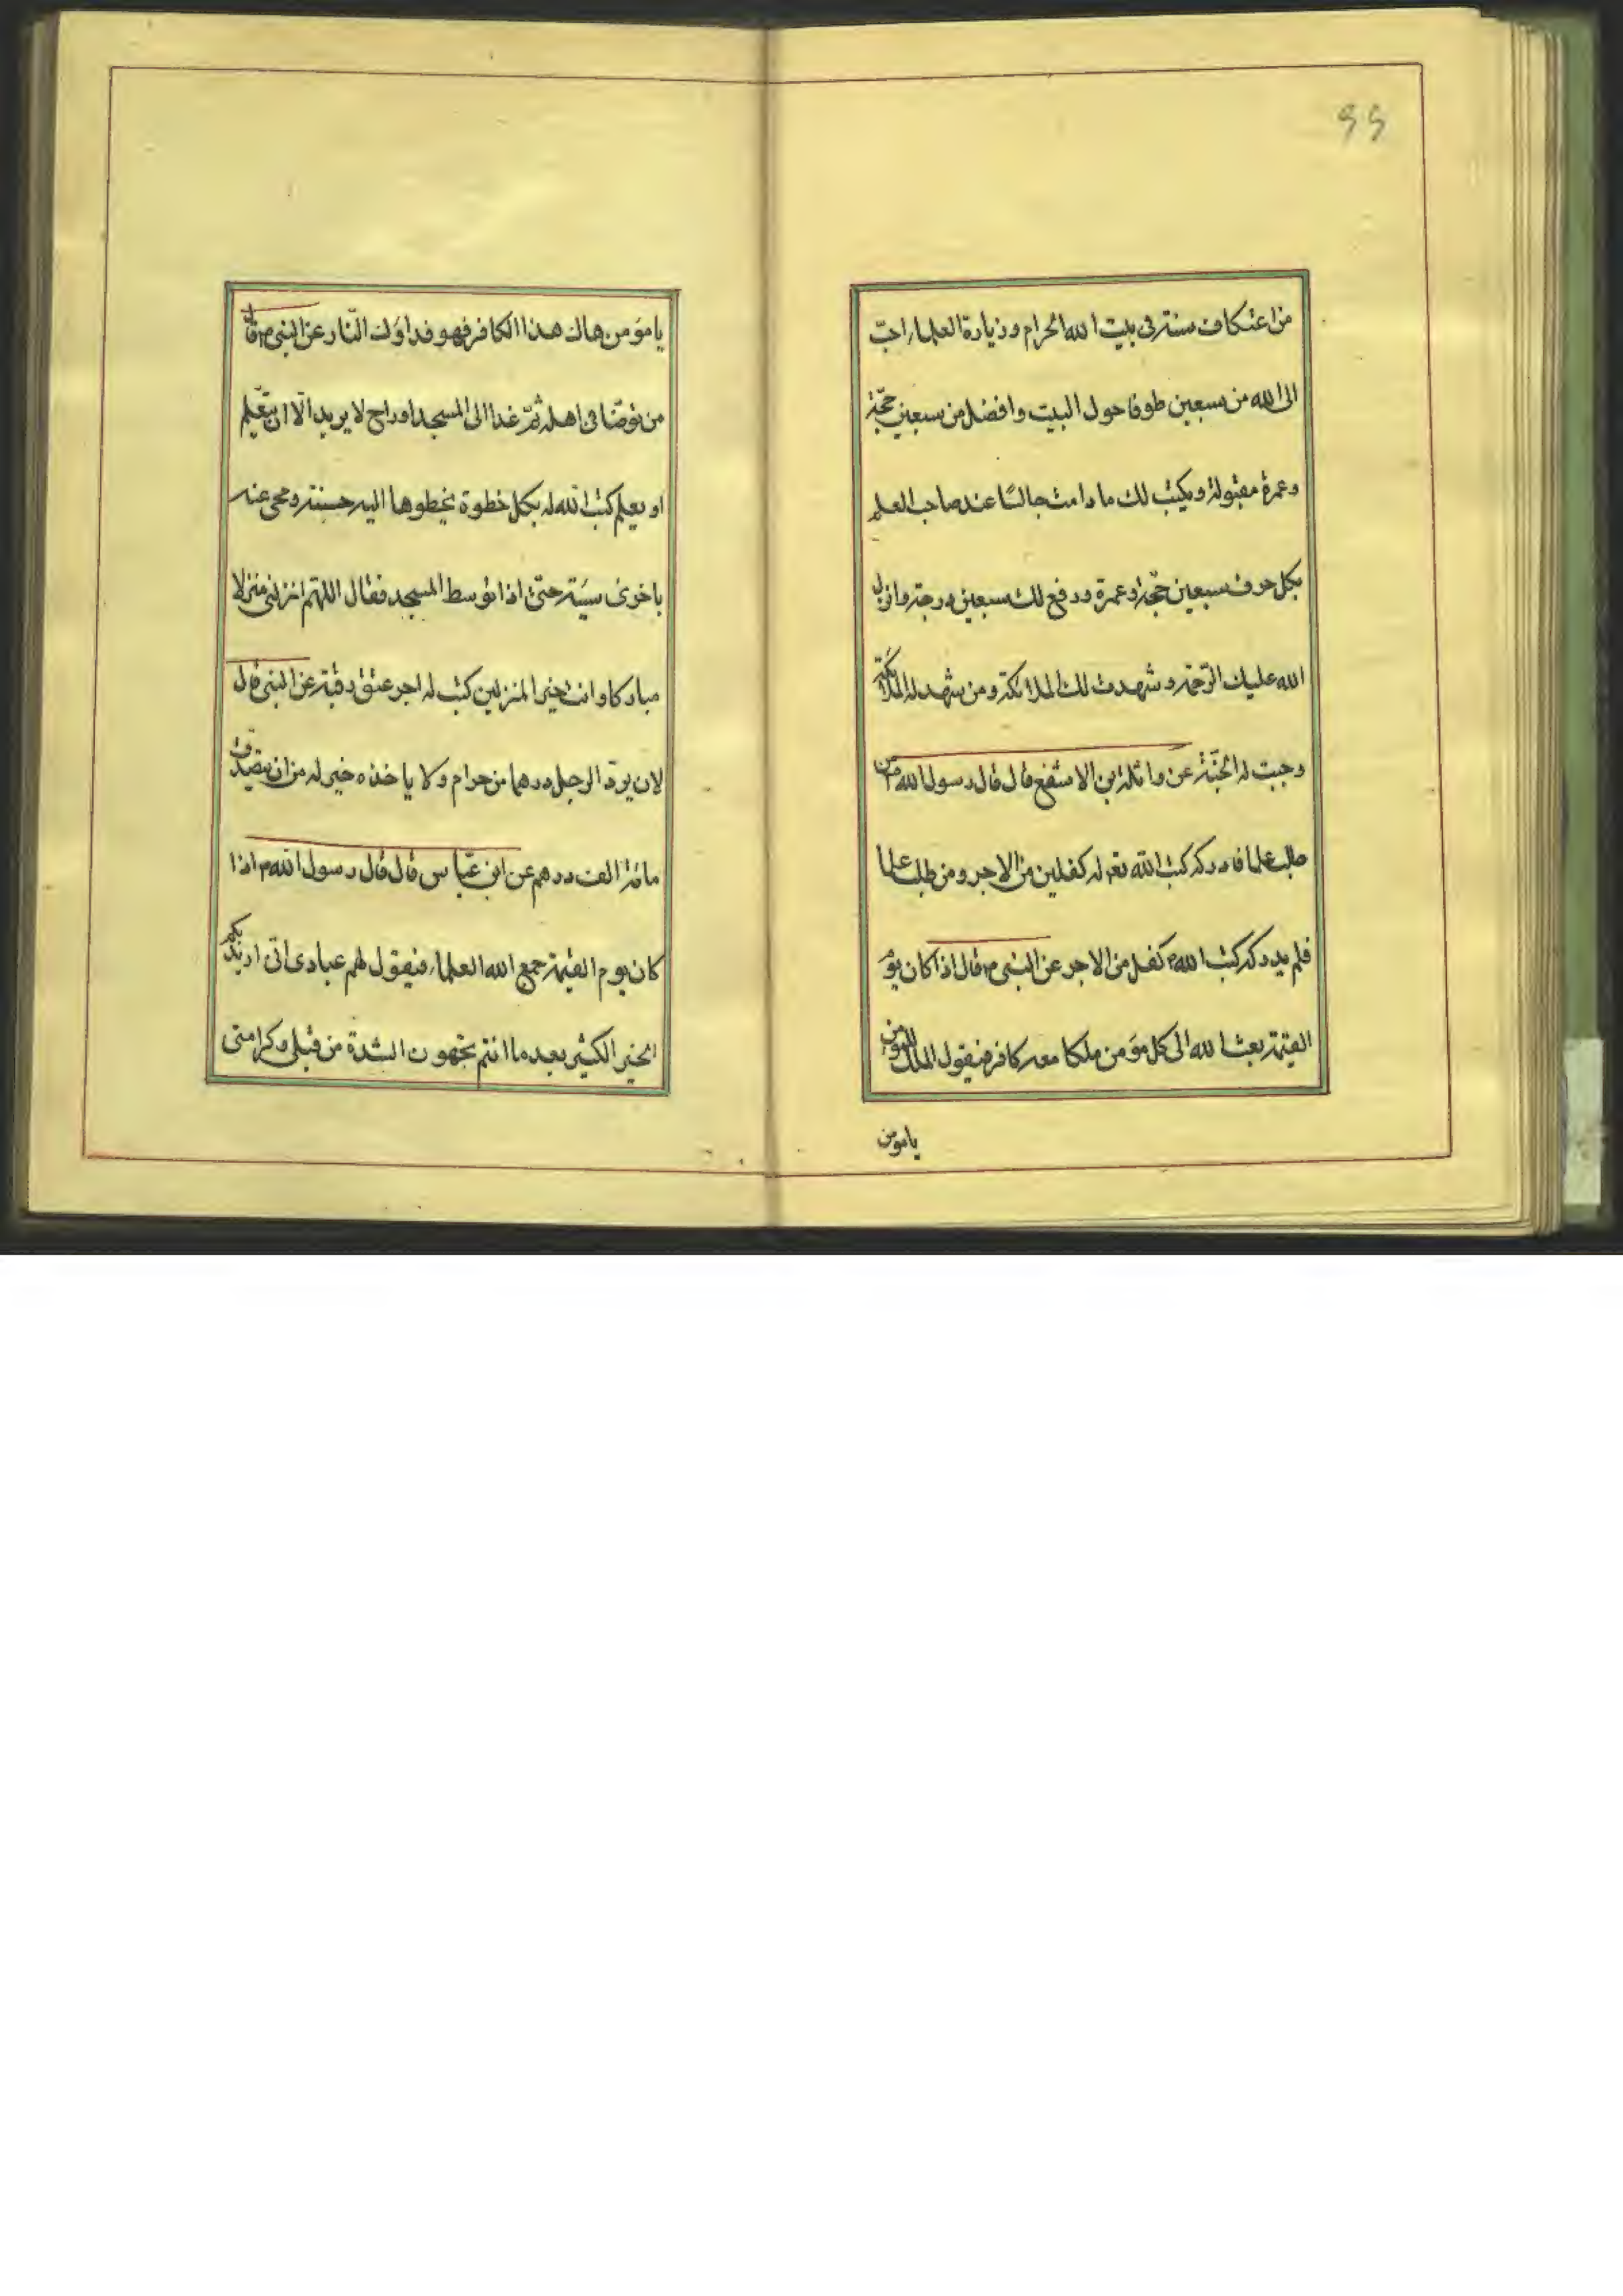 ۶۶
من اعتكاف سنة فى بيت الله الحرام وزيارة العلماء احبّ
الى الله من سبعين طوفا حول البيت وافضل من سبعين حجّة
وعمرة مقبولة ويكتب لك ما دامت جالسًا عند صاحب العلم
بكل حرف سبعين حجّة وعمرة ورفع لك سبعين درجة وانزل
الله عليك الرّحمة وشهدت لك الملائكة ومن شهد له الملائكة
وجبت له الجنّة عن واثلة ابن الاسقع قال قال رسول الله ص من
طلب علما فادركه كتب الله تعو له كفلين من الاجر ومن طلب علما
فلم يدركه كتب الله كفل من الاجر عن النبى ص قال اذا كان يوم
القيمة بعث الله الى كل مؤمن ملكا معه كافر فيقول الملك للمؤمن
يا مومن
يا مؤمن هاك هذا الكافر فهو فداؤك النّار عن النبى ص قال
من توضّا فى اهله ثمّ غدا الى المسجد او راح لا يريد الّا ان يتعّلم
او يعلم كتب الله له بكل خطوة يخطوها اليه حسنة ومحى عنه
باخرى سيّة حتىّ اذا توسط المسجد فقال اللهمّ انزلنى منزلا
مباركا وانت خير المنزلين كتب له اجر عتق رقبة عن النبى قال
لان يردّ الرجل درهما من حرام ولا ياخذه خير له من ان يتصدّق
مائة الف درهم عن ابن عبّاس قال قال رسول الله ص اذا
كان يوم القيمة جمع الله العلماء فيقول لهم عبادى انّى اريد بكم
الخير الكثير بعد ما انتم تجهون الشدة من قبلى وكرامتى